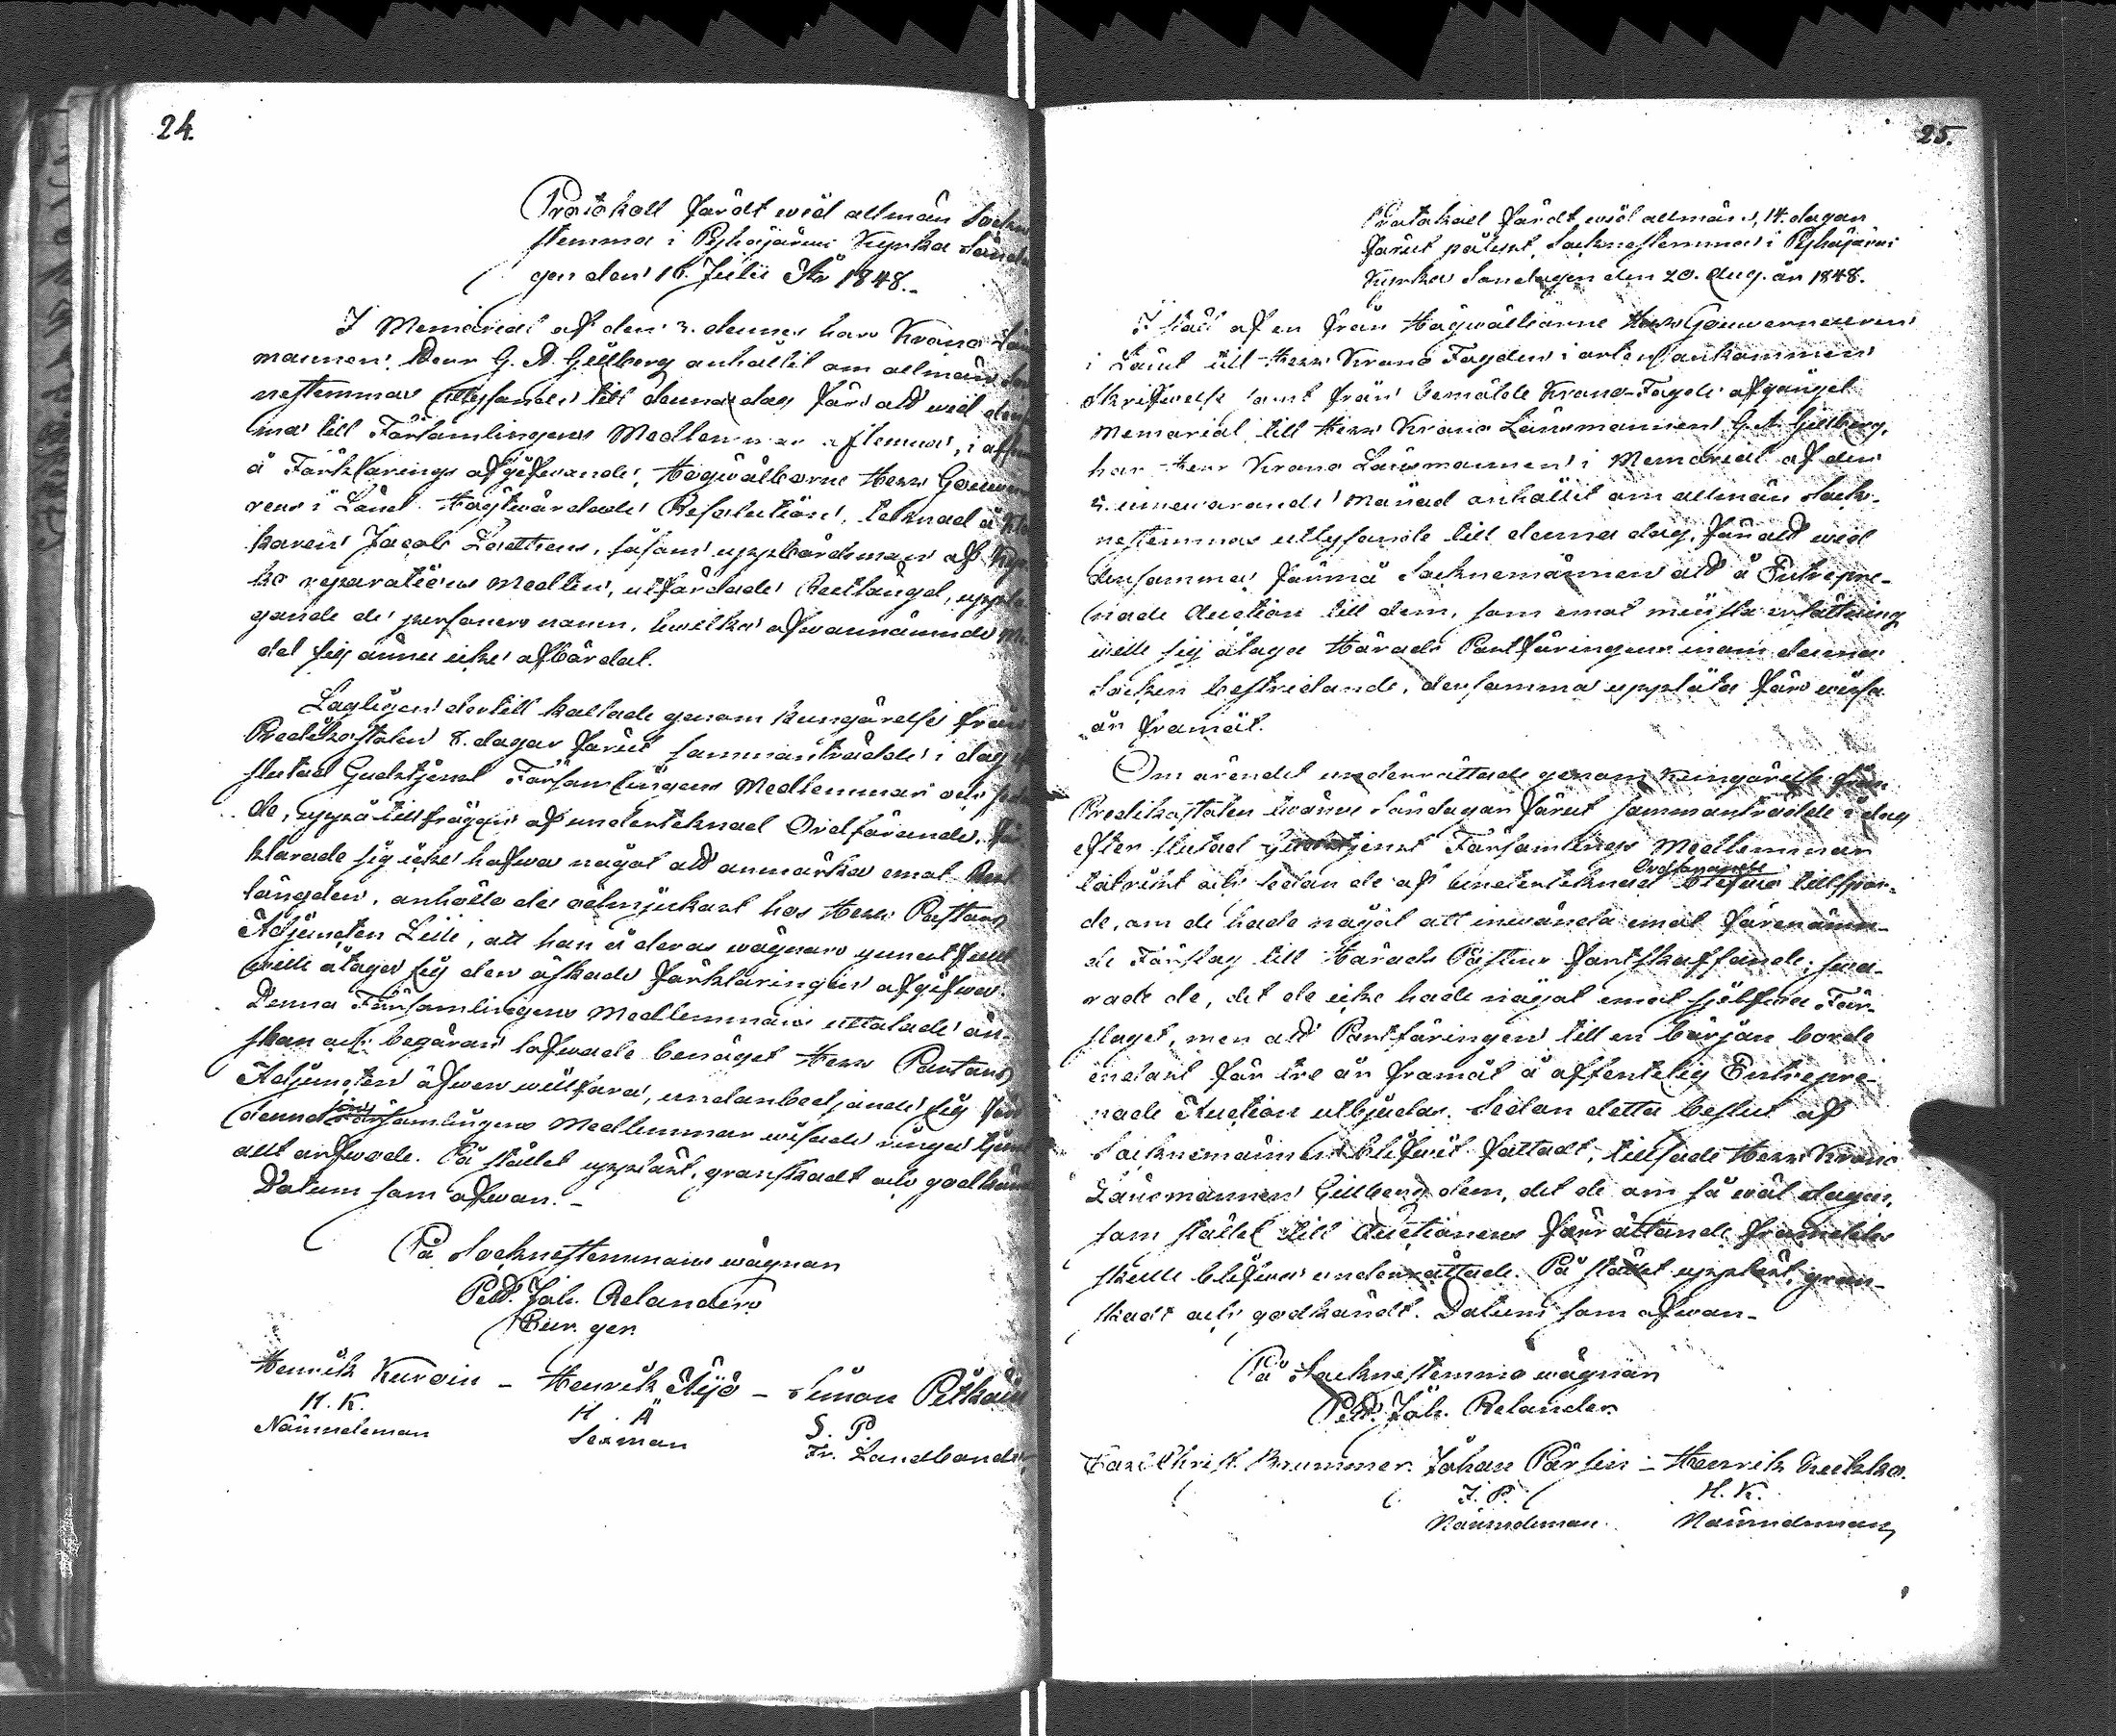 24.
Protokoll fördt wid allmän Sockne
stemma i Pyhäjärwi Kyrka Sönda
gen den 16. Julii År 1848.
I Memorial af den 3. dennes har Krono Läns
mannen, Herr G. A. Gillberg anhållit om allmän Sock
nestemmas utlysande till denna dag för att wid den
ma till Församlingens Medlemmar aflemna, i afse
å Förklarings afgifwande, Högwälborne Herr Gouver
rens i Länet Högtwördade Resolution, teknad å Klo
karen Jacob Lauthens, såsom uppbördsman af Kyr
ko reparations medlen, utfärdade Restlängd, uppta
gande de personers namn, hwilka ofwannämnde Me
del sig ännu icke afbördat.
Lagligen dertill kallade genom kungörelse från
Predikostolen 8. dagar förut sammanträdde i dag ef
slutad Gudstjenst Församlingens Medlemmar och
de, uppå tillfrågan af undertecknad Ordförande, för
klarade sig icke hafwa något att anmärka emot Rest
längden, anhöllo de ödmjukast hos Herr Pastors
Adjuncten Lilli, att han å deras wägnar gunstfullt
wille åtaga sig den äskade förklaringens afgifwa.
Denna Församlingens Medlemmars uttalade ön-
skan och begäran lofwade benäget Herr Pastors
Adjuncten äfwen willfara, undanbedjande sig för
denna Församlingens Medlemmar wisade ringa tjenst
allt arfwode. På stället uppläst, granskadt och godkändt
Datum som ofwan.
På Socknestemmans wägnar
Petr. Joh. Relander
Cur. ger.
Henrik Kuroin - Henrik Äijö - Simon Pitkän
H. K. H. Ä S. P.
Nämndeman Sexman Fr. Landbonde
25.
Protokoll fördt wid allmän, 14. dagar
förut pålyst Socknestemma i Pyhäjärwi
Kyrka Söndagen den 20. Aug. år 1848.
I stöd af en från Högwälborne Herr Gouverneuren
i Länet till Herr Krono Fogden i orten ankommen
skrifwelse samt från bemälde Krono-Fogde afgånget
Memorial till Herr Krono Länsmannen G. A. Gillberg,
har Herr Krono Länsmannen i Memorial af den
5. innewarande månad anhållit om allmän Sock-
nestemmas utlysande till denna dag, för att wid
densamma förmå Socknemännen att å Entrepre-
nade Auction till dem, som emot minsta ersättning
wille sig åtaga Härads Postföringens inom denna
Socken bestridande, densamma upplåta för wissa
år framåt.
Om ärendet underrättade genom kungörelse från
Predikostolen twänne Söndagar förut sammanträdde i dag
efter slutad Gudstjenst Församlings Medlemmar
talrikt och sedan de af undertecknad Ordförande blefwo tillspor-
de, om de hade något att inwända emot förenämn-
de Förslag till Härads Postens fortskaffande, swa-
rade de, det de icke hade något emot sjelfwa För-
slaget, men att Postföringen till en början borde
endast för tre år framåt å offentelig Entrepre-
nade Auction utbjudas. Sedan detta beslut af
Socknemännen blifwit fattadt, tillsade Herr Krono
Länsmannen Gillberg dem, det de om så wäl dagen,
som stället till Auctionens förrättande framdeles
skulle blifwa underrättade. På stället uppläst, gran-
skadt och godkändt. Datum som ofwan.
På Socknestemmo wägnar
Petr. Joh. Relander.
Carl Christ. Brummer. Johan Pärsin - Henrik Kukko.
J. P. H. K.
Nämndeman. Nämndeman,